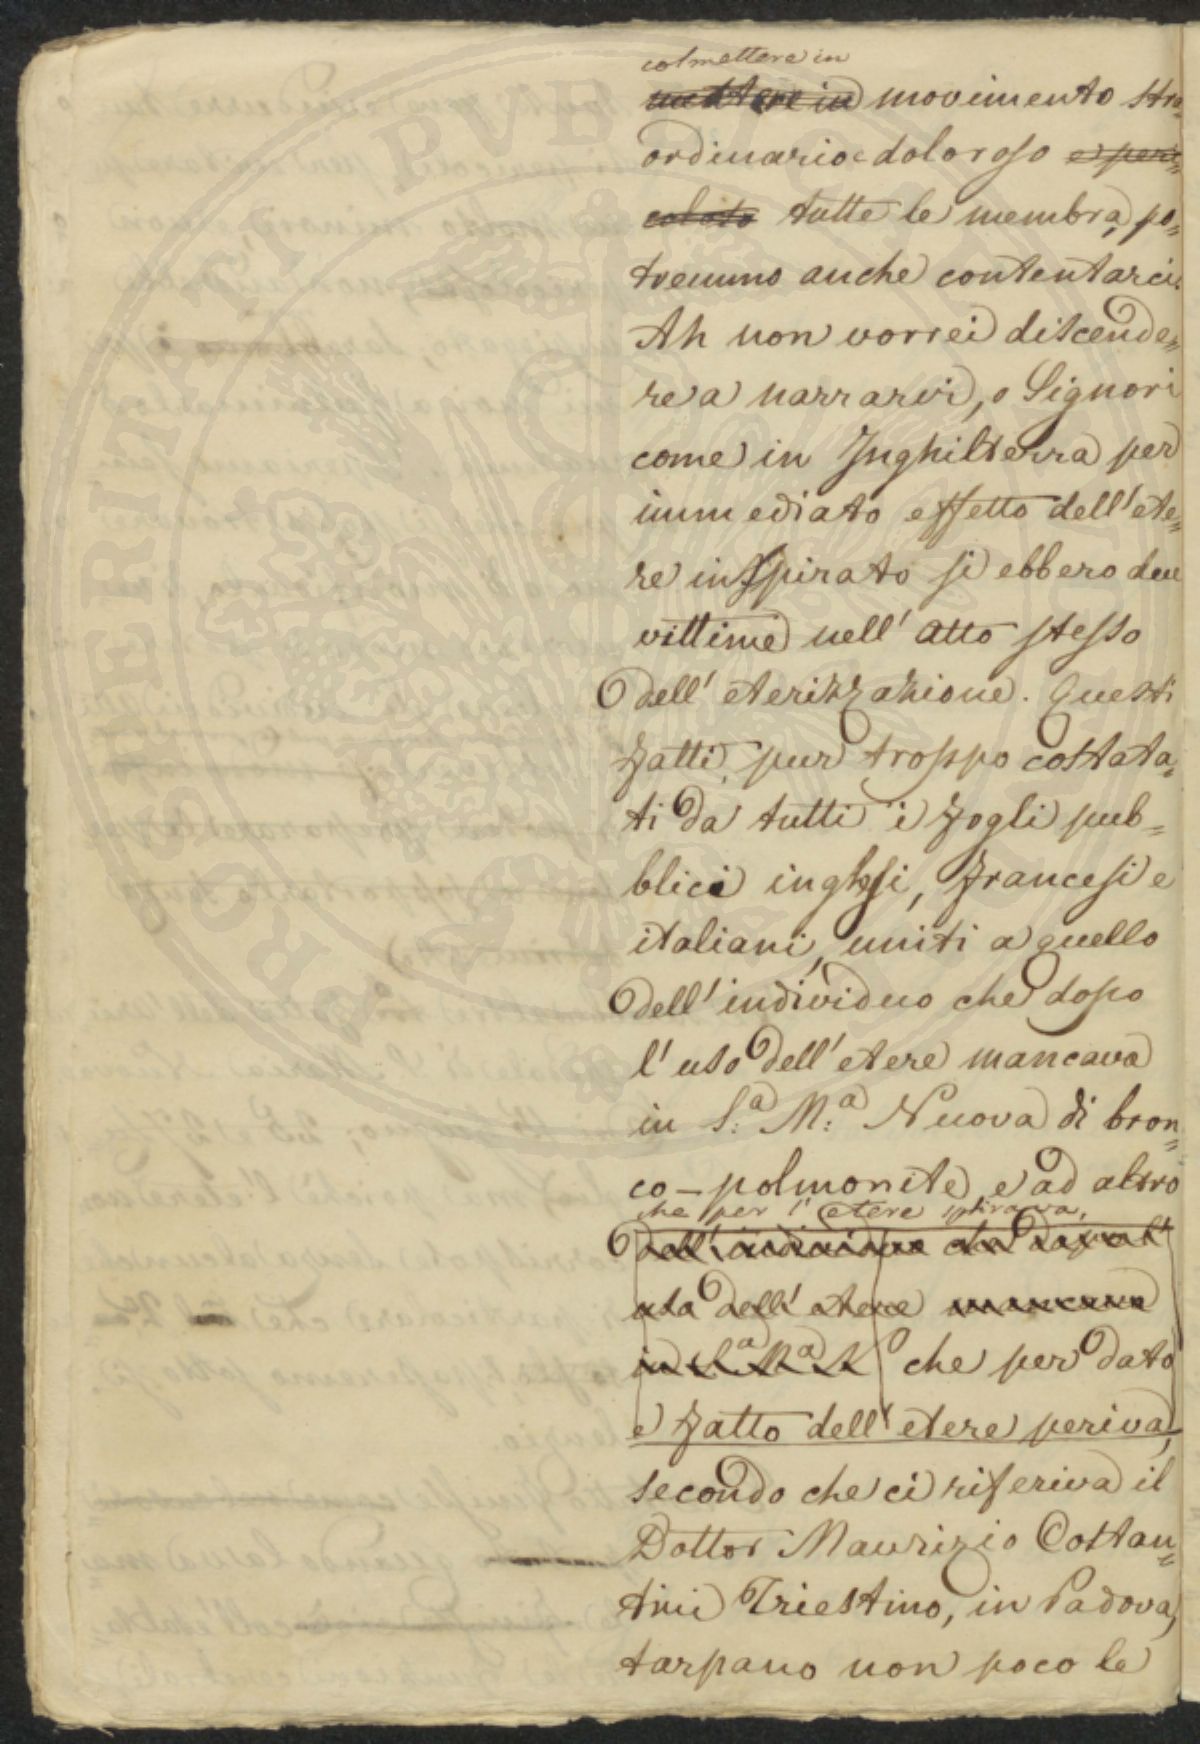 col mettere in
mettere in movimento stra-
ordinario e doloroso e peri-
coloso tutte le membra, po-
tremmo anche contentarci.
Ah non vorrei discende-
re a narrarvi, o Signori
come in Inghilterra per
immediato effetto dell'ete-
re inspirato si ebbero due
vittime nell'atto stesso
dell'eterizzazione. Questi
fatti, pur troppo costata-
ti da tutti i fogli pub-
blici inglesi, francesi e
italiani, uniti a quello
dell'individuo che dopo
l'uso dell'etere mancava
in S.a M.a Nuova di bron-
co-polmonite, e ad altro
che per l'etere spirava,
dell'individuo che dopo l'
uso dell'etere mancava
in S.a M.a N che per dato
e fatto dell'etere periva,
secondo che ci riferiva il
Dottor Maurizio Costan-
tini Triestino, in Padova,
tarpano non poco le
PROSPERITATI PVBLICAE